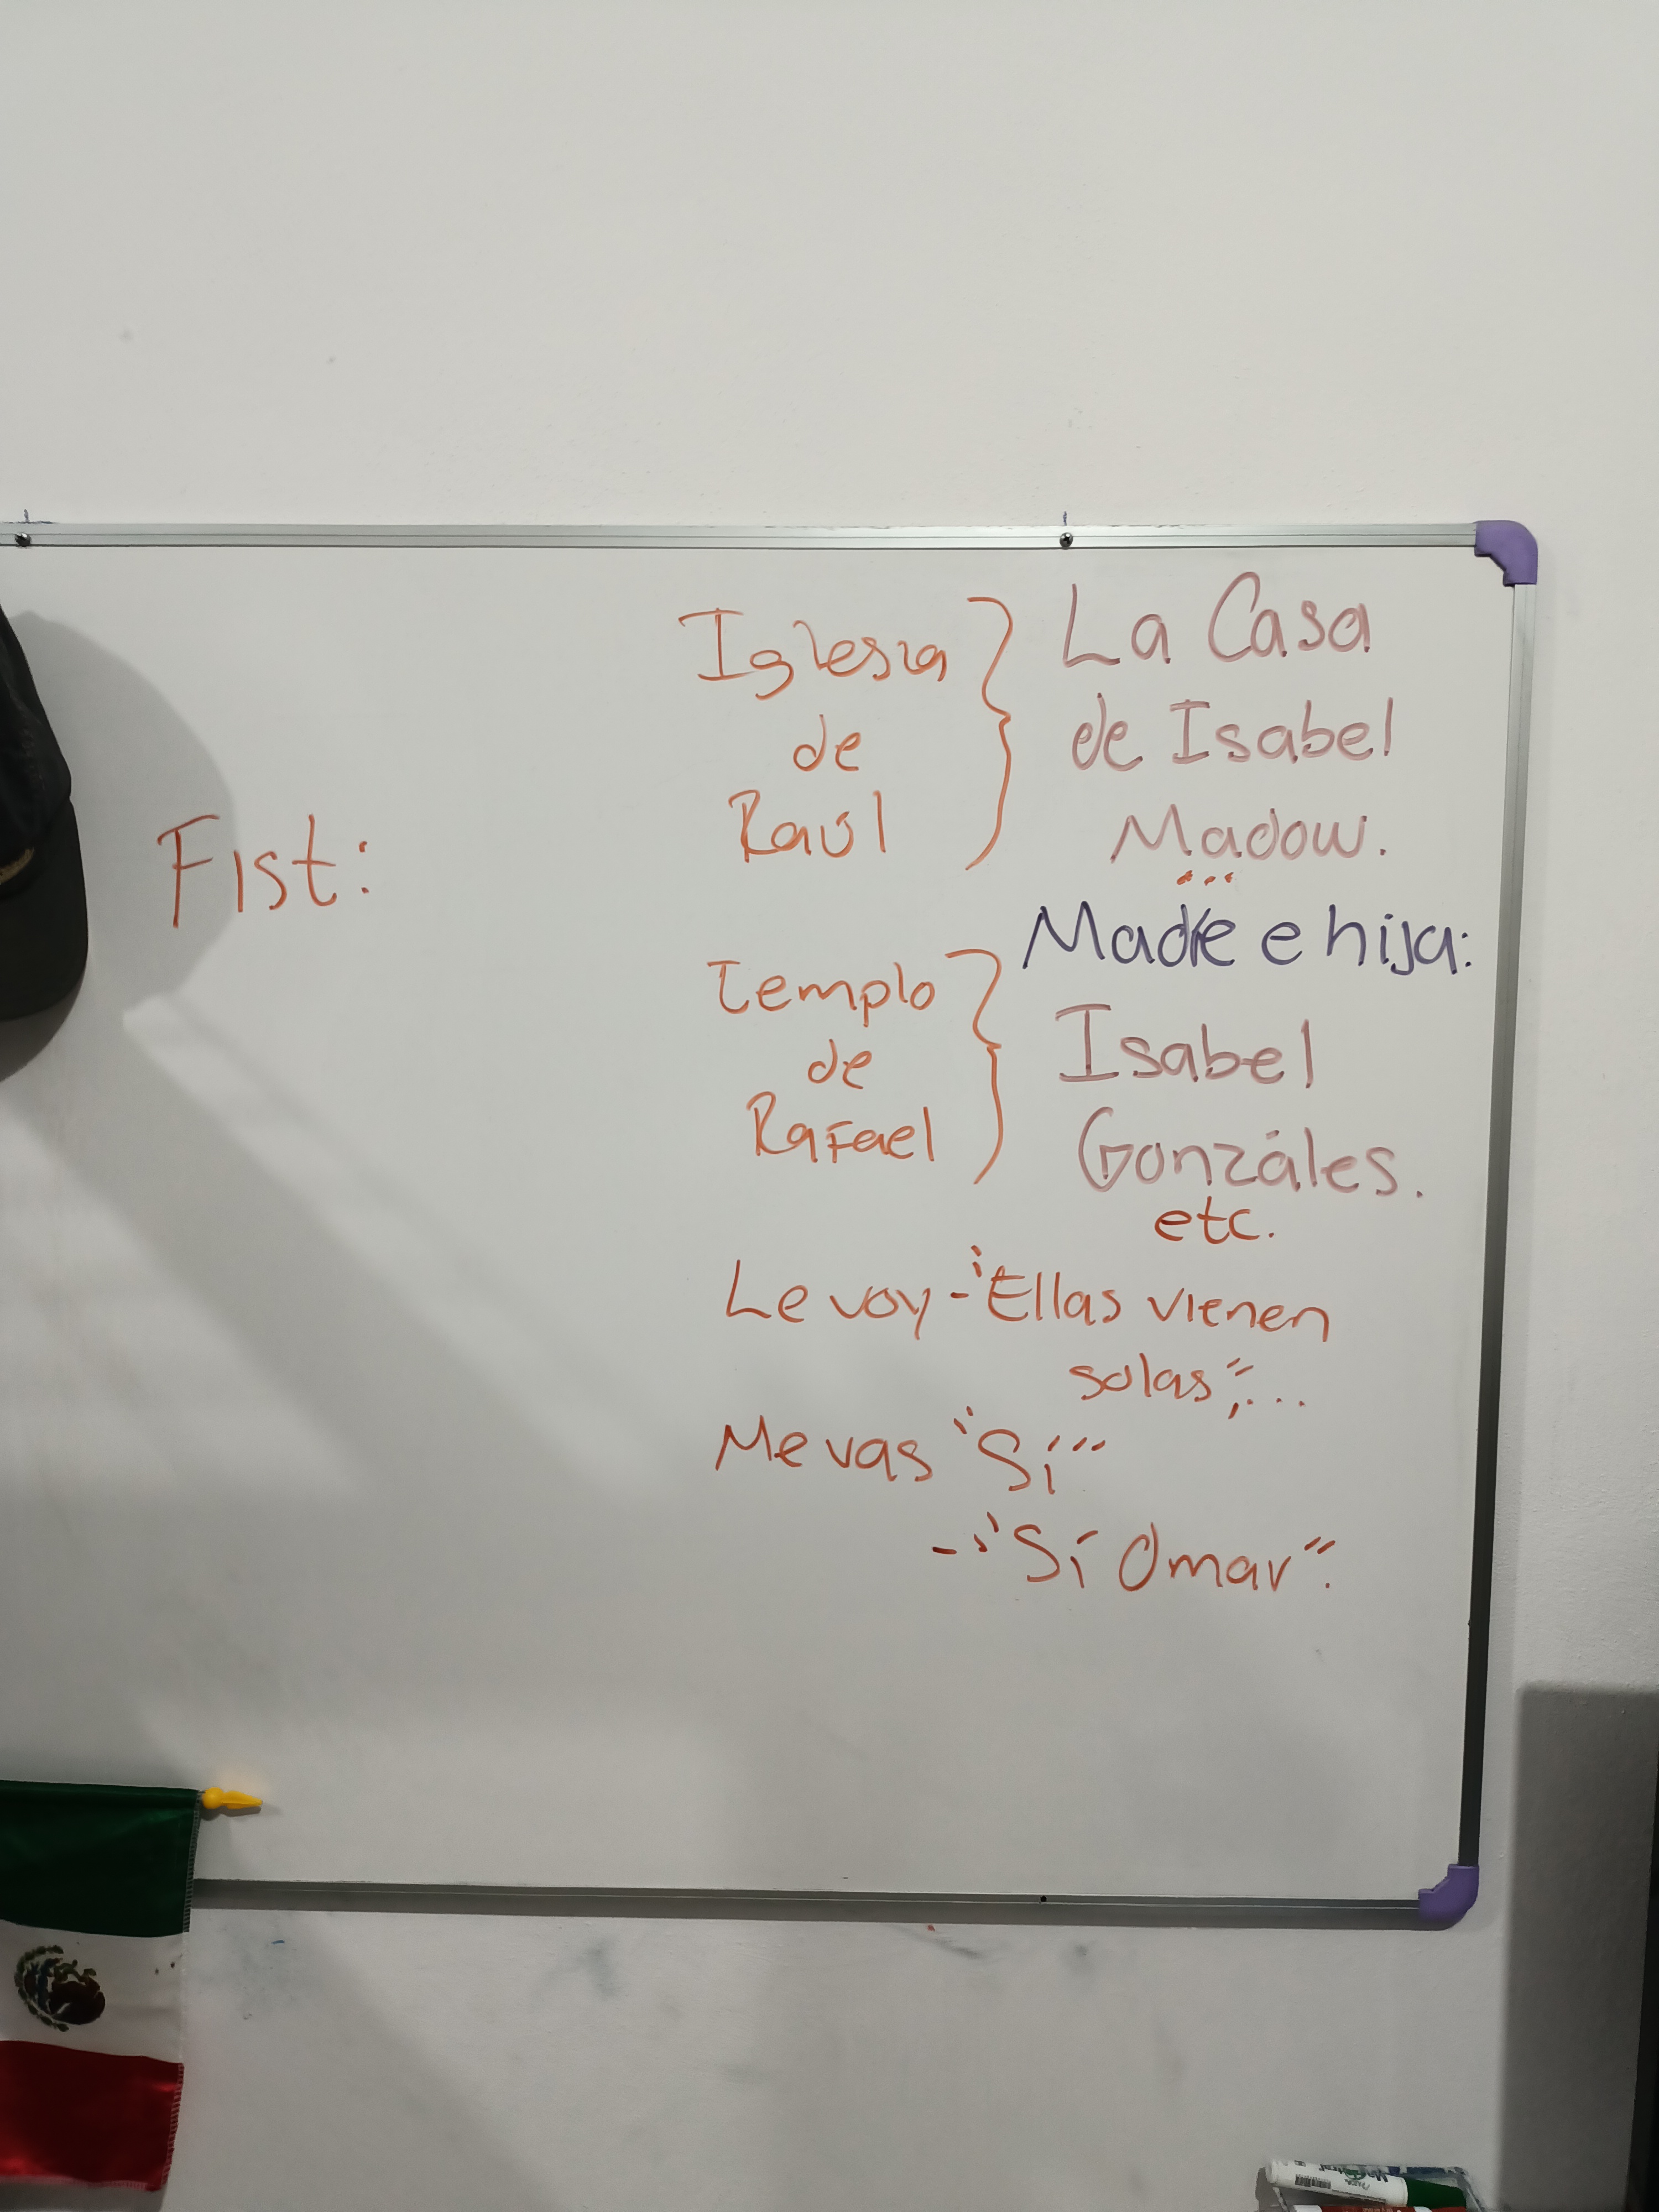 Fist:
Iglesia
de
Raúl
La Casa
de Isabel
Madow.
...
Madre e hija:
Templo
de
Rafael
Isabel
Gonzáles.
etc.
Le voy - "Ellas vienen
solas";...
Me vas "Sí"
- "Sí Omar".